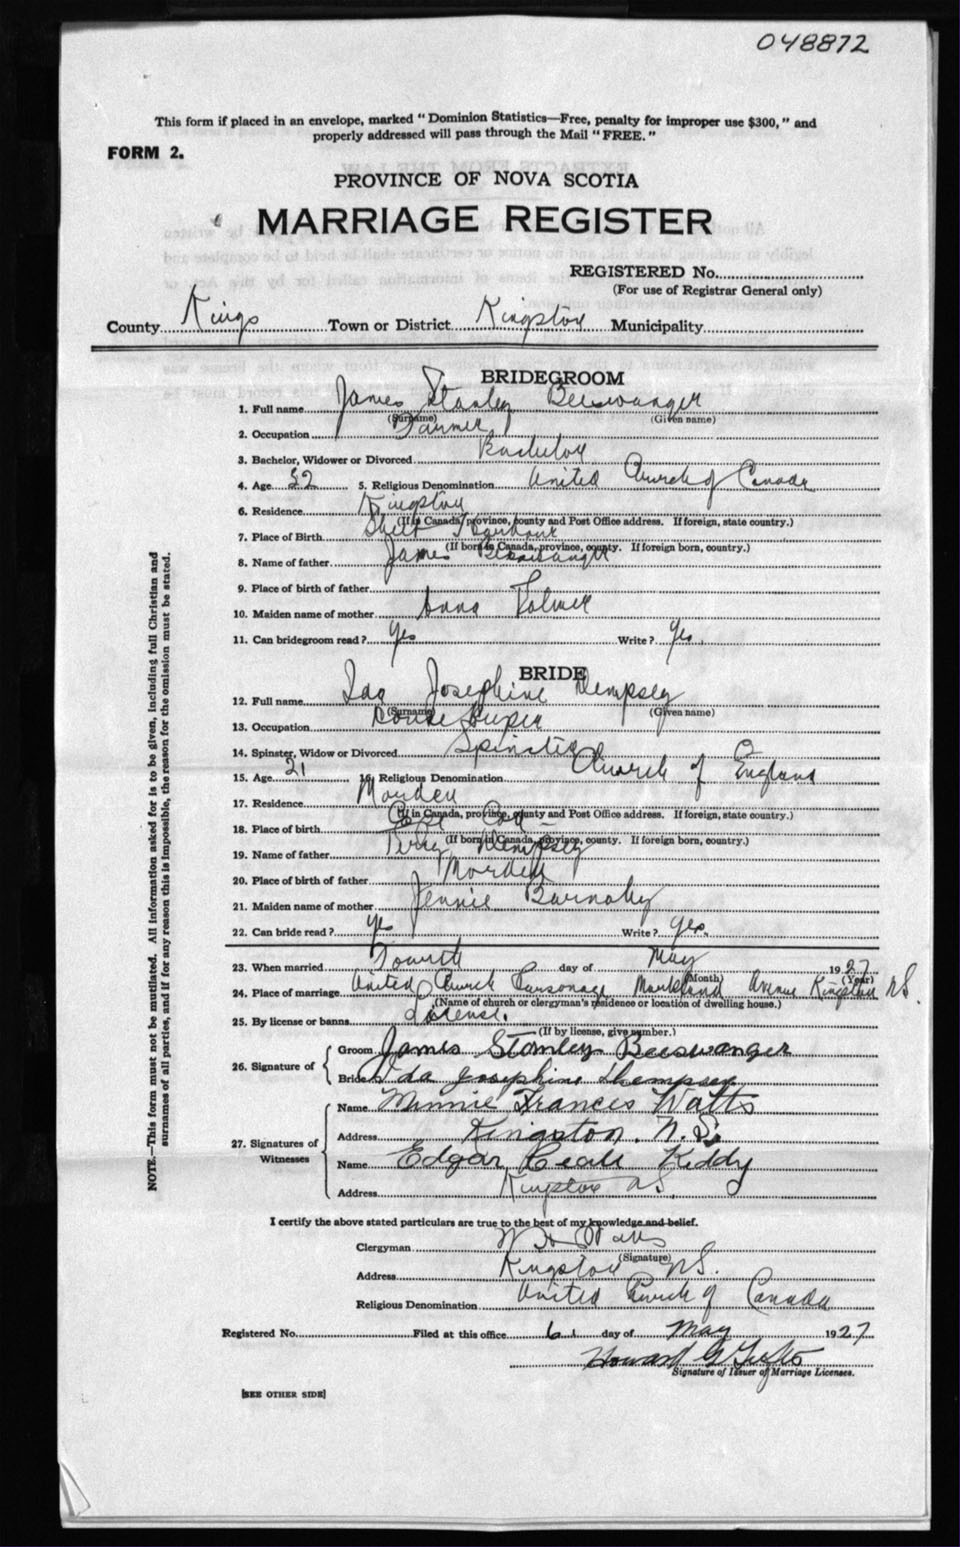 048872
This form if placed in an envelope, marked "Dominion Statistics—Free, penalty for improper use $300," and
properly addressed will pass through the Mail "FREE."
FORM 2.
PROVINCE OF NOVA SCOTIA
MARRIAGE REGISTER
REGISTERED No.
(For use of Registrar General only)
County Kings Town or District Kingston Municipality
BRIDEGROOM
1. Full name James Stanley Beeswanger
(Surname) (Given name)
2. Occupation Farmer
3. Bachelor, Widower or Divorced Bachelor
4. Age 32 5. Religious Denomination United Church of Canada
6. Residence Kingston
(If in Canada, province, county and Post Office address. If foreign, state country.)
7. Place of Birth
(If born in Canada, province, county. If foreign born, country.)
8. Name of father James Beeswanger
9. Place of birth of father
10. Maiden name of mother Anna
11. Can bridegroom read? Yes Write? Yes.
BRIDE
12. Full name Ida Josephine Dempsey
(Surname) (Given name)
13. Occupation House
14. Spinster, Widow or Divorced Spinster
15. Age 21 16. Religious Denomination Church of England
17. Residence Morden
(If in Canada, province, county and Post Office address. If foreign, state country.)
18. Place of birth
(If born in Canada, province, county. If foreign born, country.)
19. Name of father Dempsey
20. Place of birth of father Morden
21. Maiden name of mother Jennie Barnaby
22. Can bride read? Yes Write? Yes.
23. When married Fourth day of May 1927
(Month) (Year)
24. Place of marriage United Church Parsonage Markland Avenue Kingston N.S.
(Name of church or clergyman's residence or location of dwelling house.)
25. By license or banns License.
(If by license, give number.)
26. Signature of Groom James Stanley Beeswanger
Bride Ida Josephine Dempsey
27. Signatures of Witnesses Name Minnie Frances Watts
Address Kingston. N.S.
Name Edgar Kiddy
Address Kingston N.S.
I certify the above stated particulars are true to the best of my knowledge and belief.
Clergyman Watts
(Signature)
Address Kingston N.S.
Religious Denomination United Church of Canada
Registered No. Filed at this office 6 day of May 1927
Howard G
Signature of Issuer of Marriage Licenses.
[SEE OTHER SIDE]
NOTE.—This form must not be mutilated. All information asked for is to be given, including full Christian and
surnames of all parties, and if for any reason this is impossible, the reason for the omission must be stated.